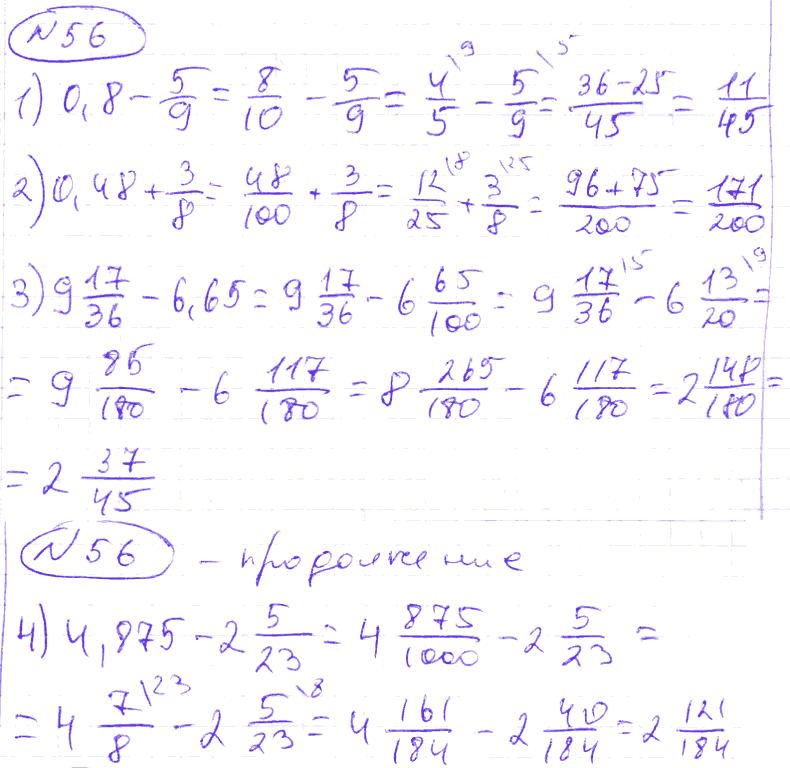 N56
1) 0,8 - 5/9 = 8/10 - 5/9 = 4/5 \9 - 5/9 \5 = 36-25/45 = 11/45
2) 0,48 + 3/8 = 48/100 + 3/8 = 12/25 \8 + 3/8 \25 = 96+75/200 = 171/200
3) 9 17/36 - 6,65 = 9 17/36 - 6 65/100 = 9 17/36 \5 - 6 13/20 \9 =
= 9 85/180 - 6 117/180 = 8 265/180 - 6 117/180 = 2 148/180 =
= 2 37/45
N56 - продолжение
4) 4,875 - 2 5/23 = 4 875/1000 - 2 5/23 =
= 4 7/8 \23 - 2 5/23 \8 = 4 161/184 - 2 40/184 = 2 121/184